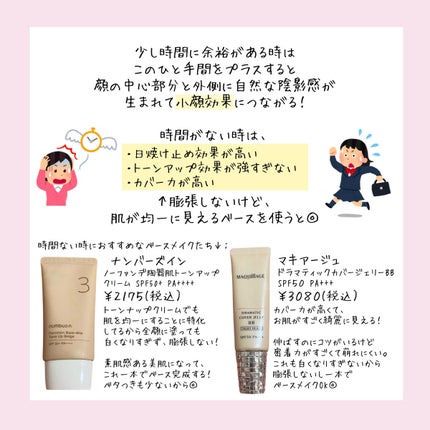 少し時間に余裕がある時は
このひと手間をプラスすると
顔の中心部分と外側に自然な陰影感が
生まれて小顔効果につながる!
時間がない時は、
・日焼け止め効果が高い
・トーンアップ効果が強すぎない
・カバー力が高い
↑膨張しないけど、
肌が均一に見えるベースを使うと◎
時間ない時におすすめなベースメイクたち↓;
ナンバーズイン
ノーファンデ陶器肌トーンアップ
クリーム SPF50+ PA++++
¥2195(税込)
トーンナップクリームでも
肌を均一にすることに特化
してるから全顔に塗っても
白くなりすぎず、膨張しない!
素肌感ある美肌になって、
これ一本でベース完成する!
ベタつきも少ないから◎
3
numbuzin
マキアージュ
ドラマティックカバージェリーBB
SPF50 PA+++
¥3080(税込)
カバー力が高くて、
お肌がすごく綺麗に見える!
伸ばすのにコツがいるけど
密着力がすごくて崩れにくい。
これも白くなりすぎないから
膨張しないし一本で
ベースメイクOK◎
MAQuillAGE
DRAMATIC
COVER JELLY
BB